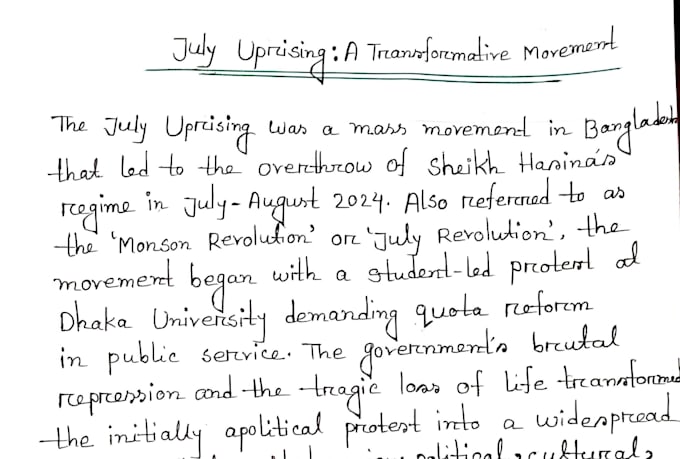 July Uprising: A Transformative Movement
The July Uprising was a mass movement in Bangladesh
that led to the overthrow of Sheikh Hasina's
regime in July-August 2024. Also referred to as
the 'Monson Revolution' or 'July Revolution', the
movement began with a student-led protest at
Dhaka University demanding quota reform
in public service. The government's brutal
repression and the tragic loss of life transformed
the initially apolitical protest into a widespread
political, cultural,